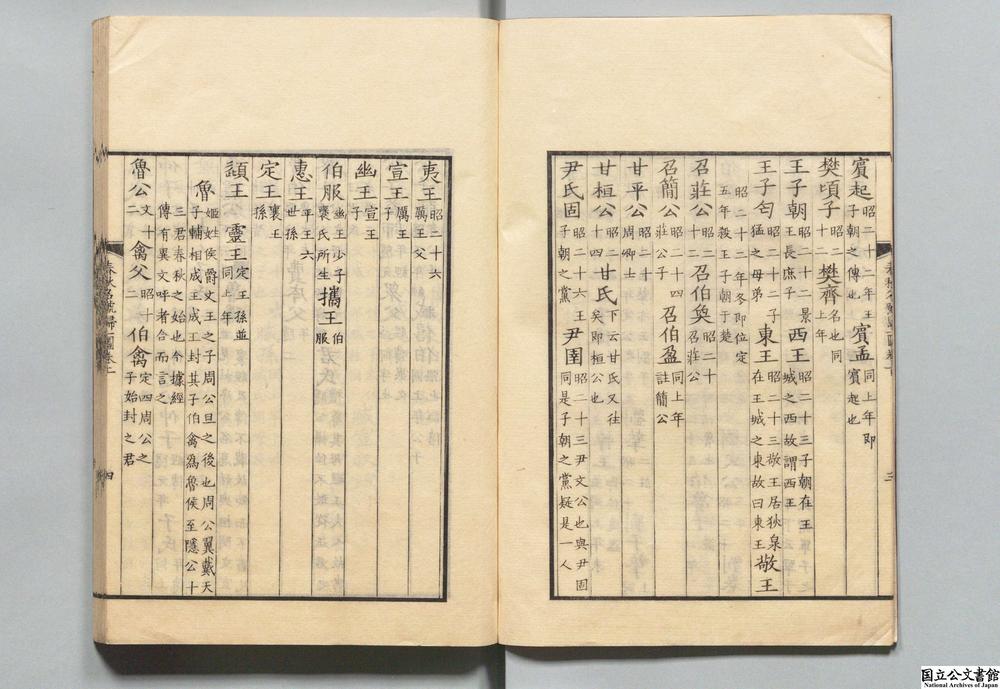 賓起 昭二十二年王子朝之傳也 賓孟 同上年即賓起也
樊頃子 昭二十二 樊齊 名也同上年
王子朝 昭二十二景王長庶子 西王 昭二十三子朝在王城之西故謂西王
王子匄 昭二十二子猛之母弟 東王 昭二十三敬王居狄泉在王城之東故曰東王 敬王
昭二十二年冬即位定五年殺王子朝于楚
召莊公 昭二十二 召伯奐 昭二十召莊公
召簡公 昭二十四莊公子 召伯盈 同上年註簡公
甘平公 昭二周卿士
甘桓公 昭二十四 甘氏 下云甘氏又往矣即桓公也
尹氏固 昭二十六王子朝之黨 尹圉 昭二十三尹文公也與尹固同是子朝之黨疑是一人
三
夷王 昭二十六厲王父
宣王 厲王子
幽王 宣王子
伯服 幽王少子褒氏所生 攜王 伯服
惠王 平王六世孫
定王 襄王孫
頴王 靈王 定王孫並同上年
魯 姬姓侯爵文王之子周公旦之後也周公翼戴天子輔相成王成王封其子伯禽爲魯侯至隱公十
三君春秋之始也今據經傳有異文呼者合而言之
魯公 文十二 禽父 昭十二 伯禽 定四周公之子始封之君
春秋名號歸一圖卷上
四
国立公文書館
National Archives of Japan